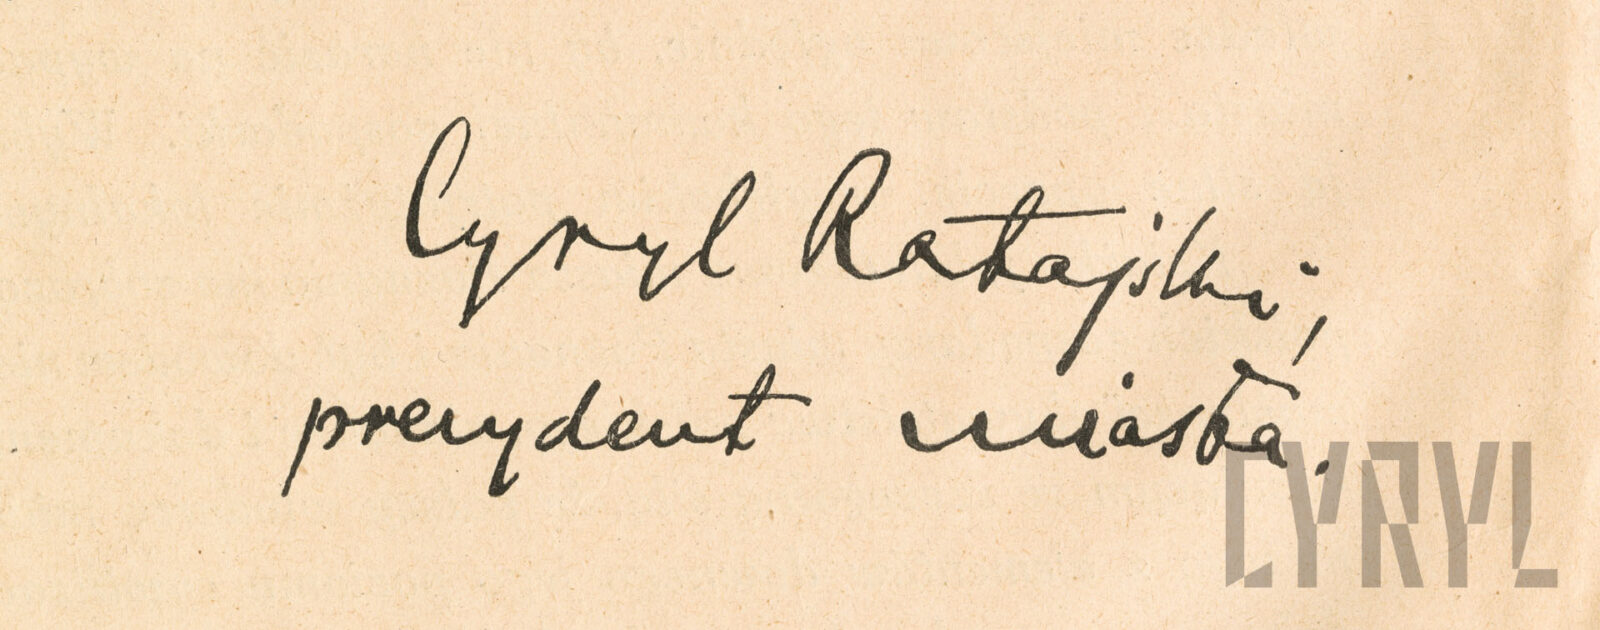 Cyryl Ratajski,
prezydent miasta.
CYRYL